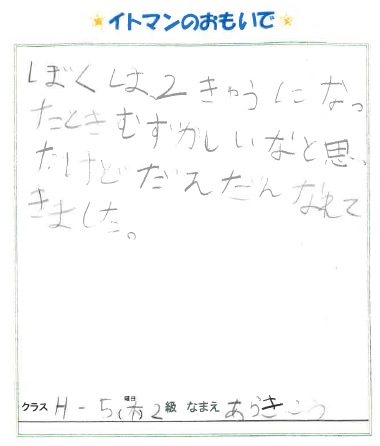 イトマンのおもいで
ぼくは、2きゅうになっ
たときむずかしいなと思っ
たけどだんだんなれて
きました。
クラス H-5(水) 曜日 2級 なまえ あらきこう